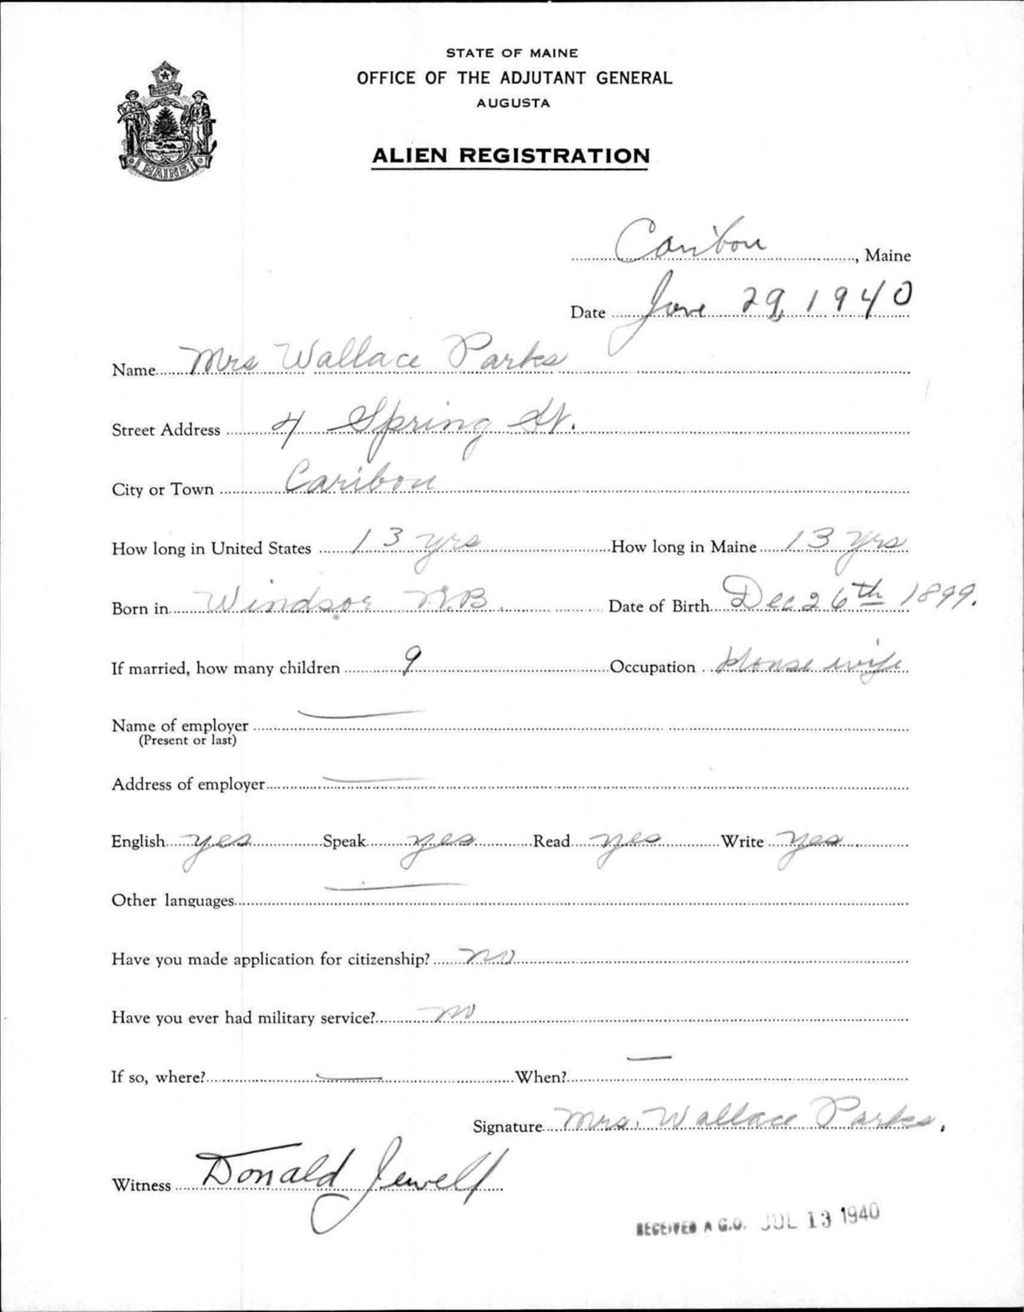 STATE OF MAINE
OFFICE OF THE ADJUTANT GENERAL
AUGUSTA
ALIEN REGISTRATION
MAINE
Caribou, Maine
Date June 29, 1940
Name Mrs Wallace Parks
Street Address 4 Spring St.
City or Town Caribou
How long in United States 13 yrs How long in Maine 13 yrs
Born in Windsor N.B. Date of Birth Dec 26th 1899.
If married, how many children 9 Occupation House wife
Name of employer —
(Present or last)
Address of employer —
English yes Speak yes Read yes Write yes
Other languages —
Have you made application for citizenship? no
Have you ever had military service? no
If so, where? — When? —
Signature Mrs. Wallace Parks.
Witness Donald Jewell
RECEIVED A G.O. JUL 13 1940